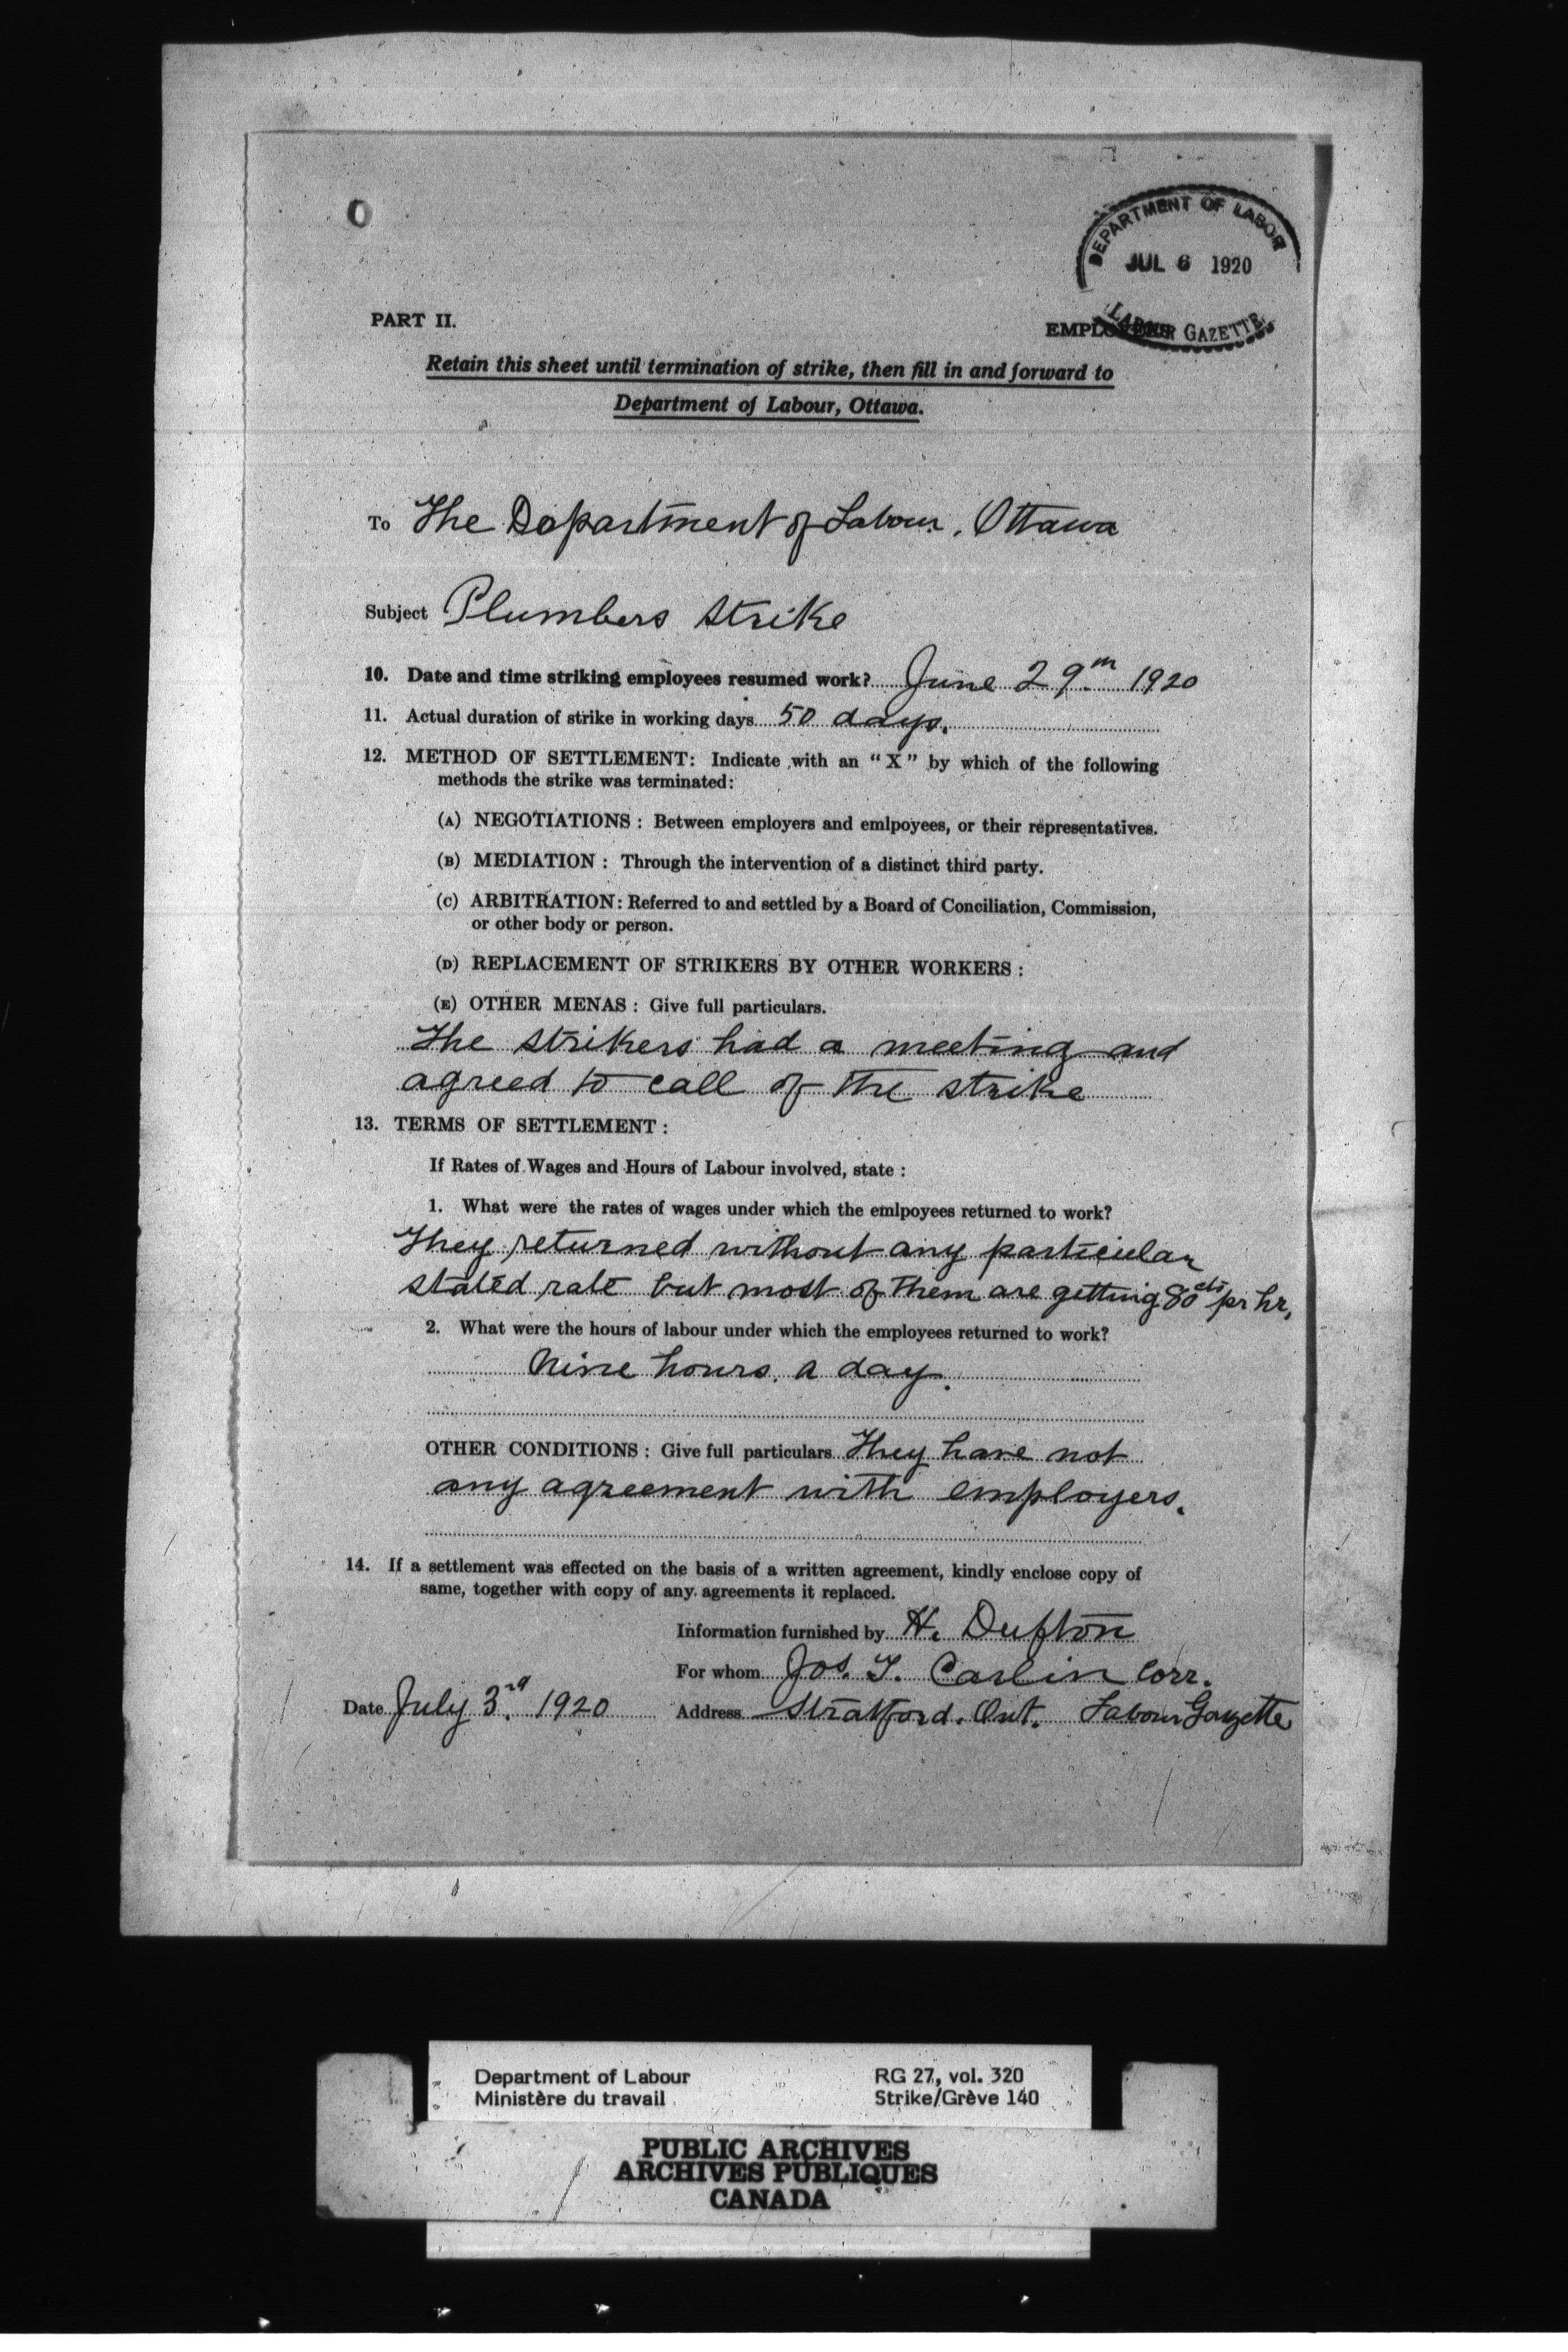 DEPARTMENT OF LABOR
JUL 6 1920
LABOUR GAZETTE
PART II.
Retain this sheet until termination of strike, then fill in and forward to
Department of Labour, Ottawa.
To The Department of Labour, Ottawa
Subject Plumbers Strike
10. Date and time striking employees resumed work? June 29th 1920
11. Actual duration of strike in working days 50 days.
12. METHOD OF SETTLEMENT: Indicate with an "X" by which of the following
methods the strike was terminated:
(A) NEGOTIATIONS : Between employers and emlpoyees, or their representatives.
(B) MEDIATION : Through the intervention of a distinct third party.
(C) ARBITRATION: Referred to and settled by a Board of Conciliation, Commission,
or other body or person.
(D) REPLACEMENT OF STRIKERS BY OTHER WORKERS :
(E) OTHER MENAS : Give full particulars.
The strikers had a meeting and
agreed to call of the strike
13. TERMS OF SETTLEMENT :
If Rates of Wages and Hours of Labour involved, state :
1. What were the rates of wages under which the emlpoyees returned to work?
They returned without any particular
stated rate but most of them are getting 80 cts pr hr,
2. What were the hours of labour under which the employees returned to work?
Nine hours. a day.
OTHER CONDITIONS : Give full particulars They have not
any agreement with employers.
14. If a settlement was effected on the basis of a written agreement, kindly enclose copy of
same, together with copy of any agreements it replaced.
Information furnished by H. Dufton
For whom Jos. T. Carlin Corr.
Date July 3rd. 1920 Address Stratford. Ont. Labour Gazette
Department of Labour RG 27, vol. 320
Ministère du travail Strike/Grève 140
PUBLIC ARCHIVES
ARCHIVES PUBLIQUES
CANADA